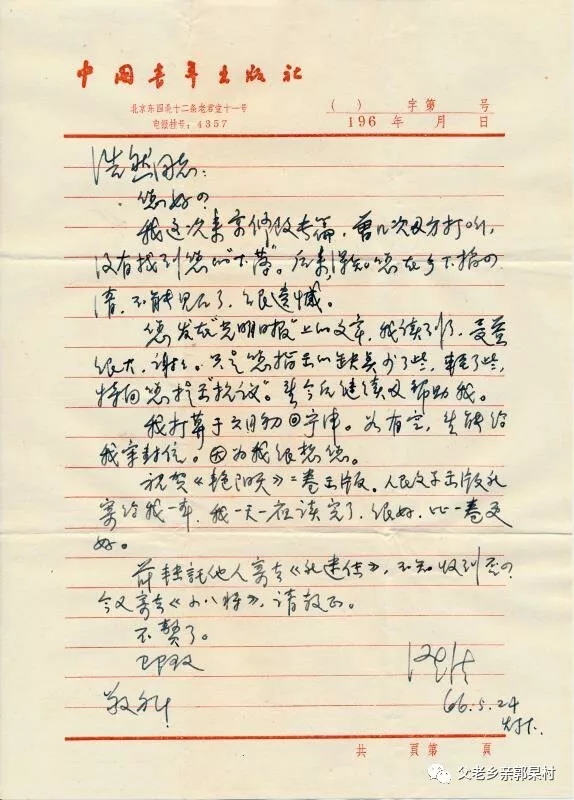 中国青年出版社
北京东四条十二条老君堂十一号
电报挂号：4357
（ ） 字第 号
196 年 月 日
浩然同志：
您好！
我这次来京修改长篇，曾几次四方打听，
没有找到您的“下落”。后来得知您在乡下搞四
清，不能见后了，很遗憾。
您发在“光明日报”上的文章，我读到了，受益
很大，谢谢。只是您指出的缺点少了些，轻了些，
特向您提出“抗议”。望今后继续多帮助我。
我打算于六月初回宁津。如有空，望能给
我写封信。因为我很想您。
祝贺《艳阳天》二卷出版。人民文学出版社
寄给我一本，我一天一夜读完了，很好，比一卷更
好。
前些托他人寄去《》，不知收到否？
今又寄去《小八将》，请教正。
不赘了。
即致
敬礼！
66.5.24
灯下.
共 頁第 頁
父老乡亲郭杲村